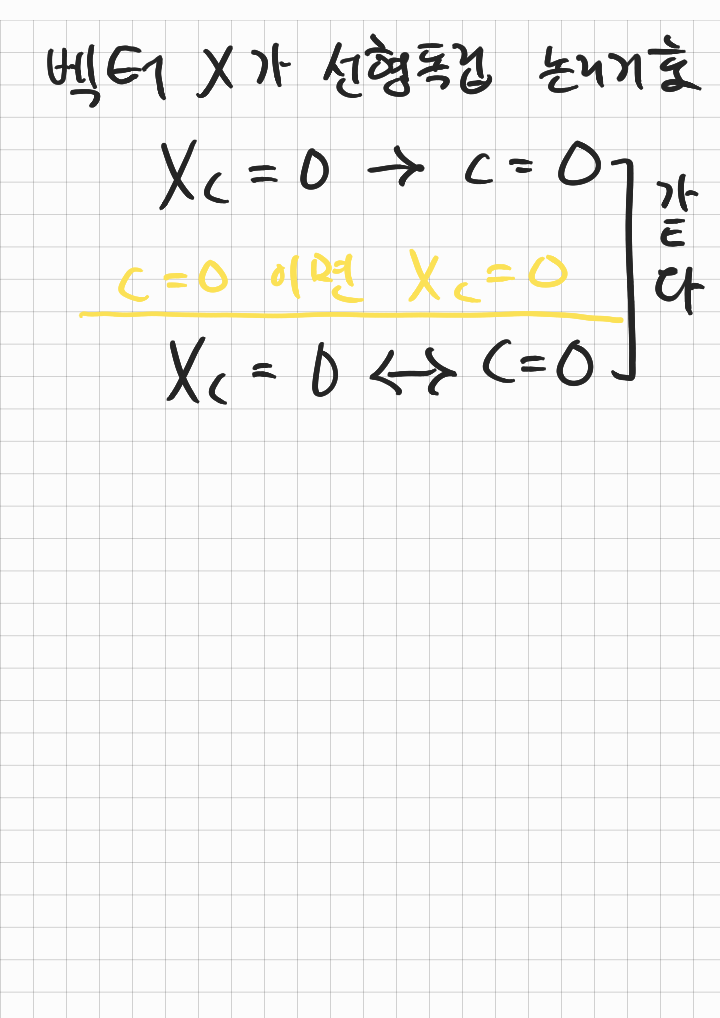 벡터 X가 선형독립 논리기호
Xc = 0 → c = 0
c = 0 이면 Xc = 0
Xc = 0 ↔ c = 0
같다